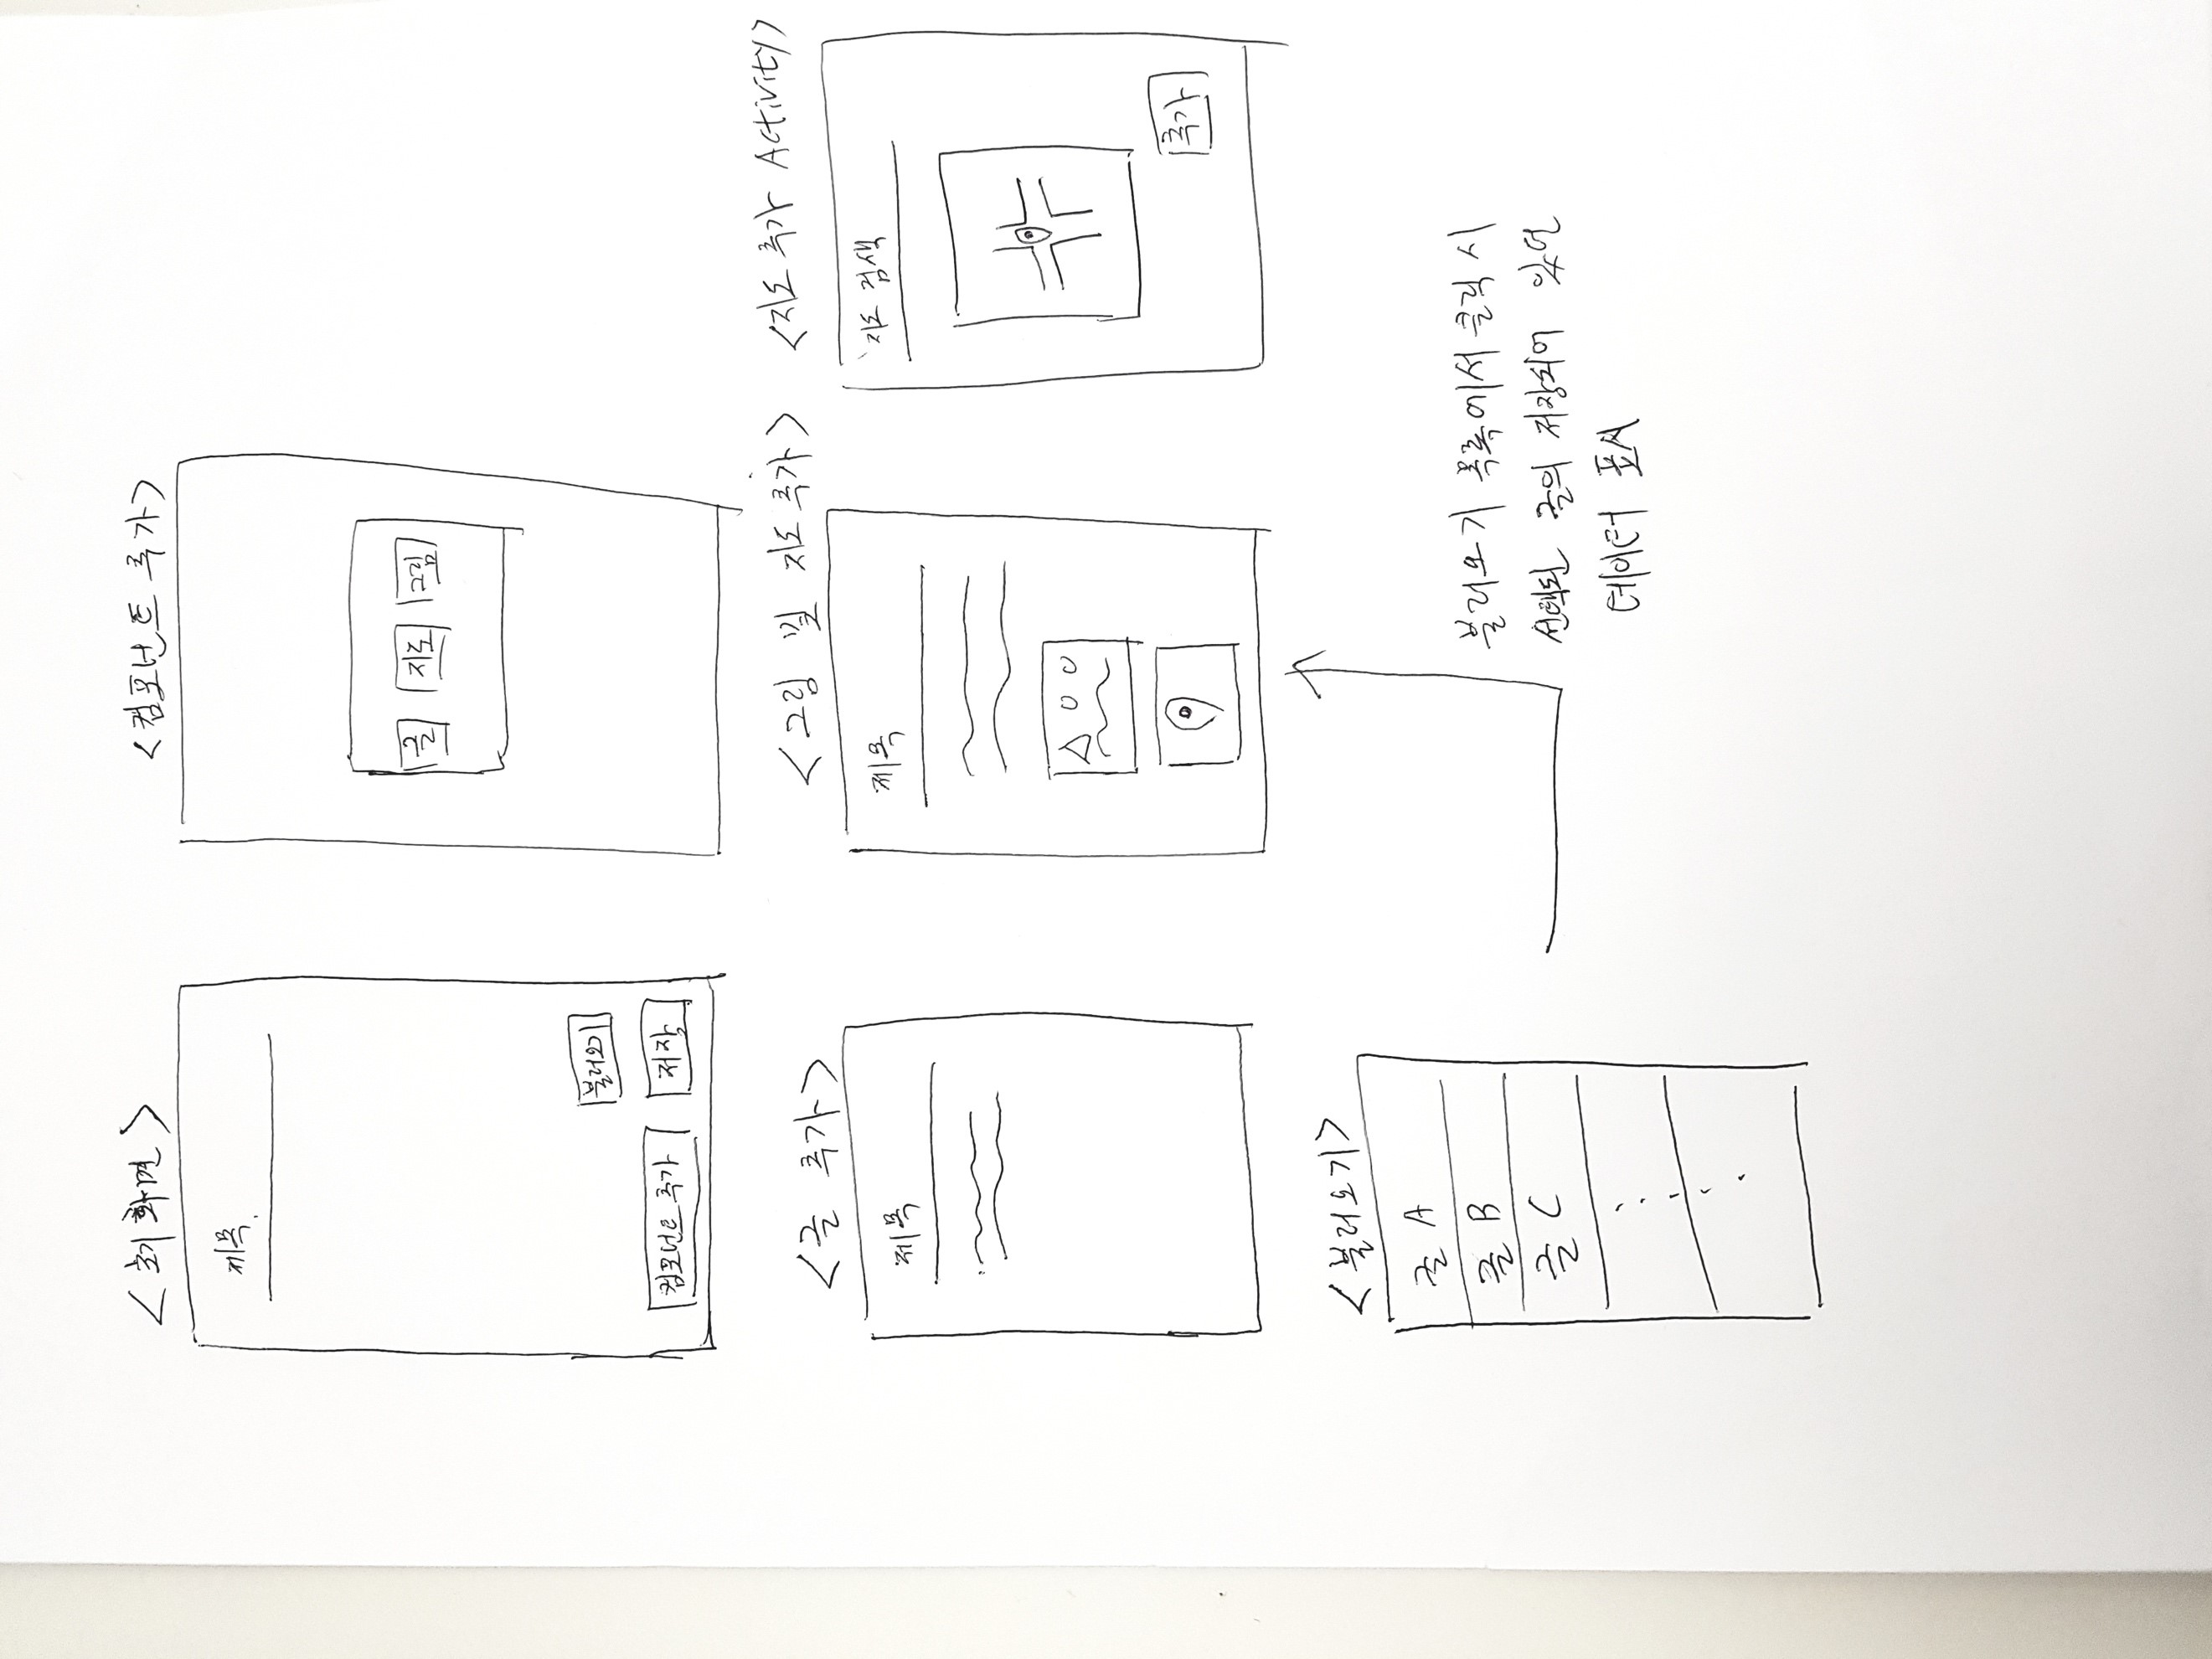 <초기 화면>
제목
불러오기
컴포넌트 추가
저장
<컴포넌트 추가>
글
지도
그림
<글 추가>
제목
<그림 및 지도 추가>
제목
<지도 추가 Activity>
지도 검색
추가
<불러오기>
글 A
글 B
글 C
불러오기 목록에서 클릭 시
선택된 글의 저장되어 있던
데이터 표시